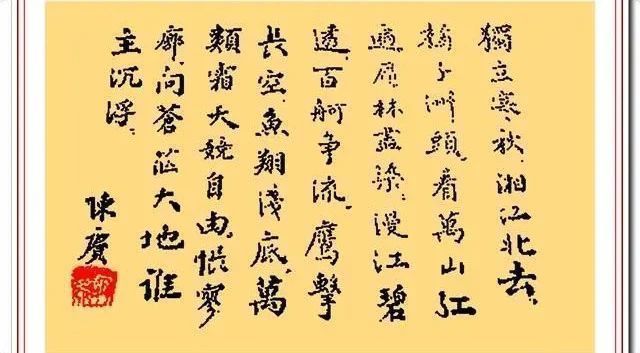 獨立寒秋.湘江北去.
橘子洲頭.看萬山红
遍.層林盡染.漫江碧
透.百舸争流.鷹擊
長空.魚翔淺底.萬
類霜天競自由.悵寥
廓.问蒼茫大地誰
主沉浮.
陳賡